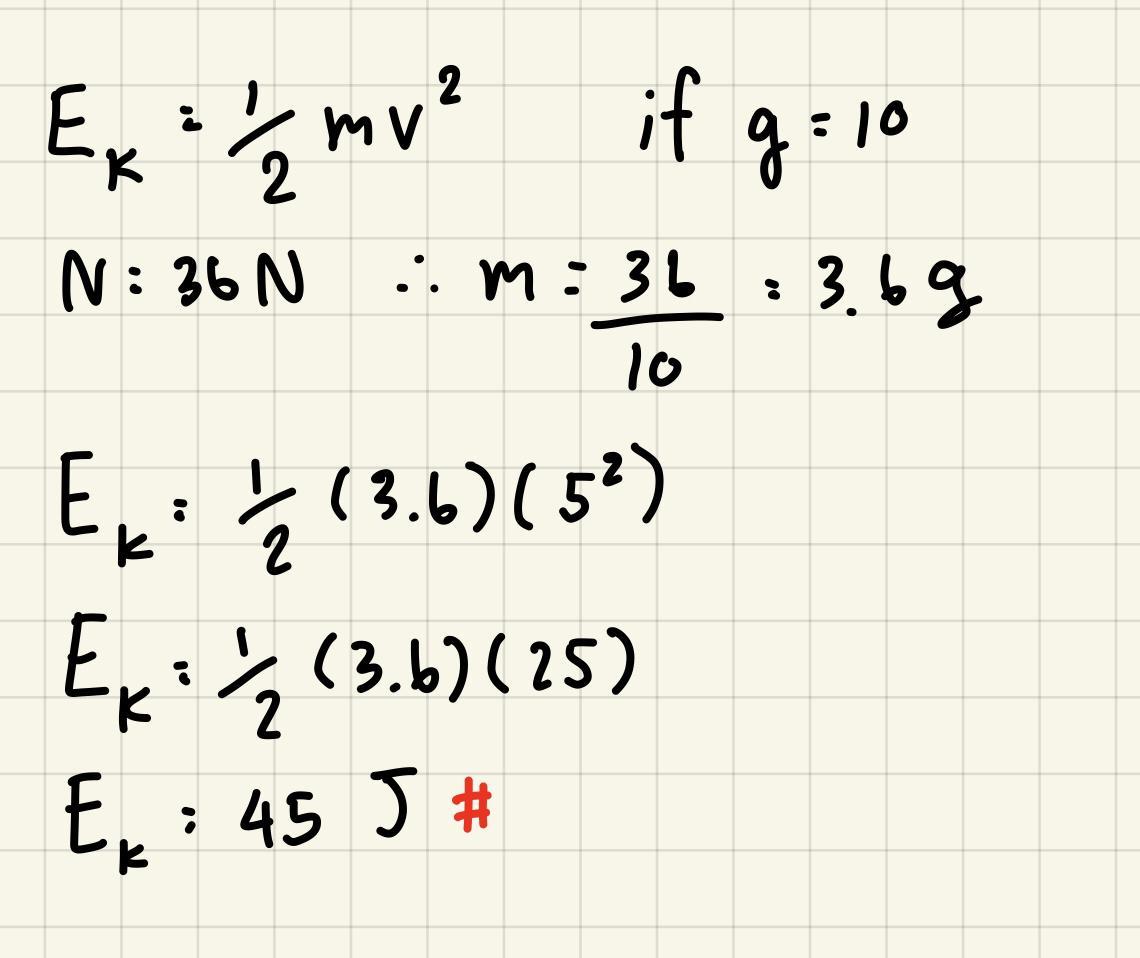 E_K = 1/2 mv² if g = 10
N = 36 N ∴ m = 36/10 = 3.6 g
E_K = 1/2 (3.6)(5²)
E_K = 1/2 (3.6)(25)
E_K = 45 J #